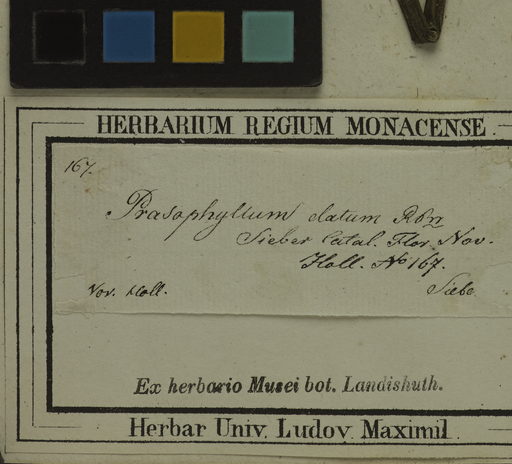 HERBARIUM REGIUM MONACENSE.
167.
Prasophyllum elatum RBrn
Sieber Catal. Flor. Nov.
Holl. No 167.
Nov. Holl.
Siebe
Ex herbario Musei bot. Landishuth.
Herbar Univ. Ludov. Maximil.